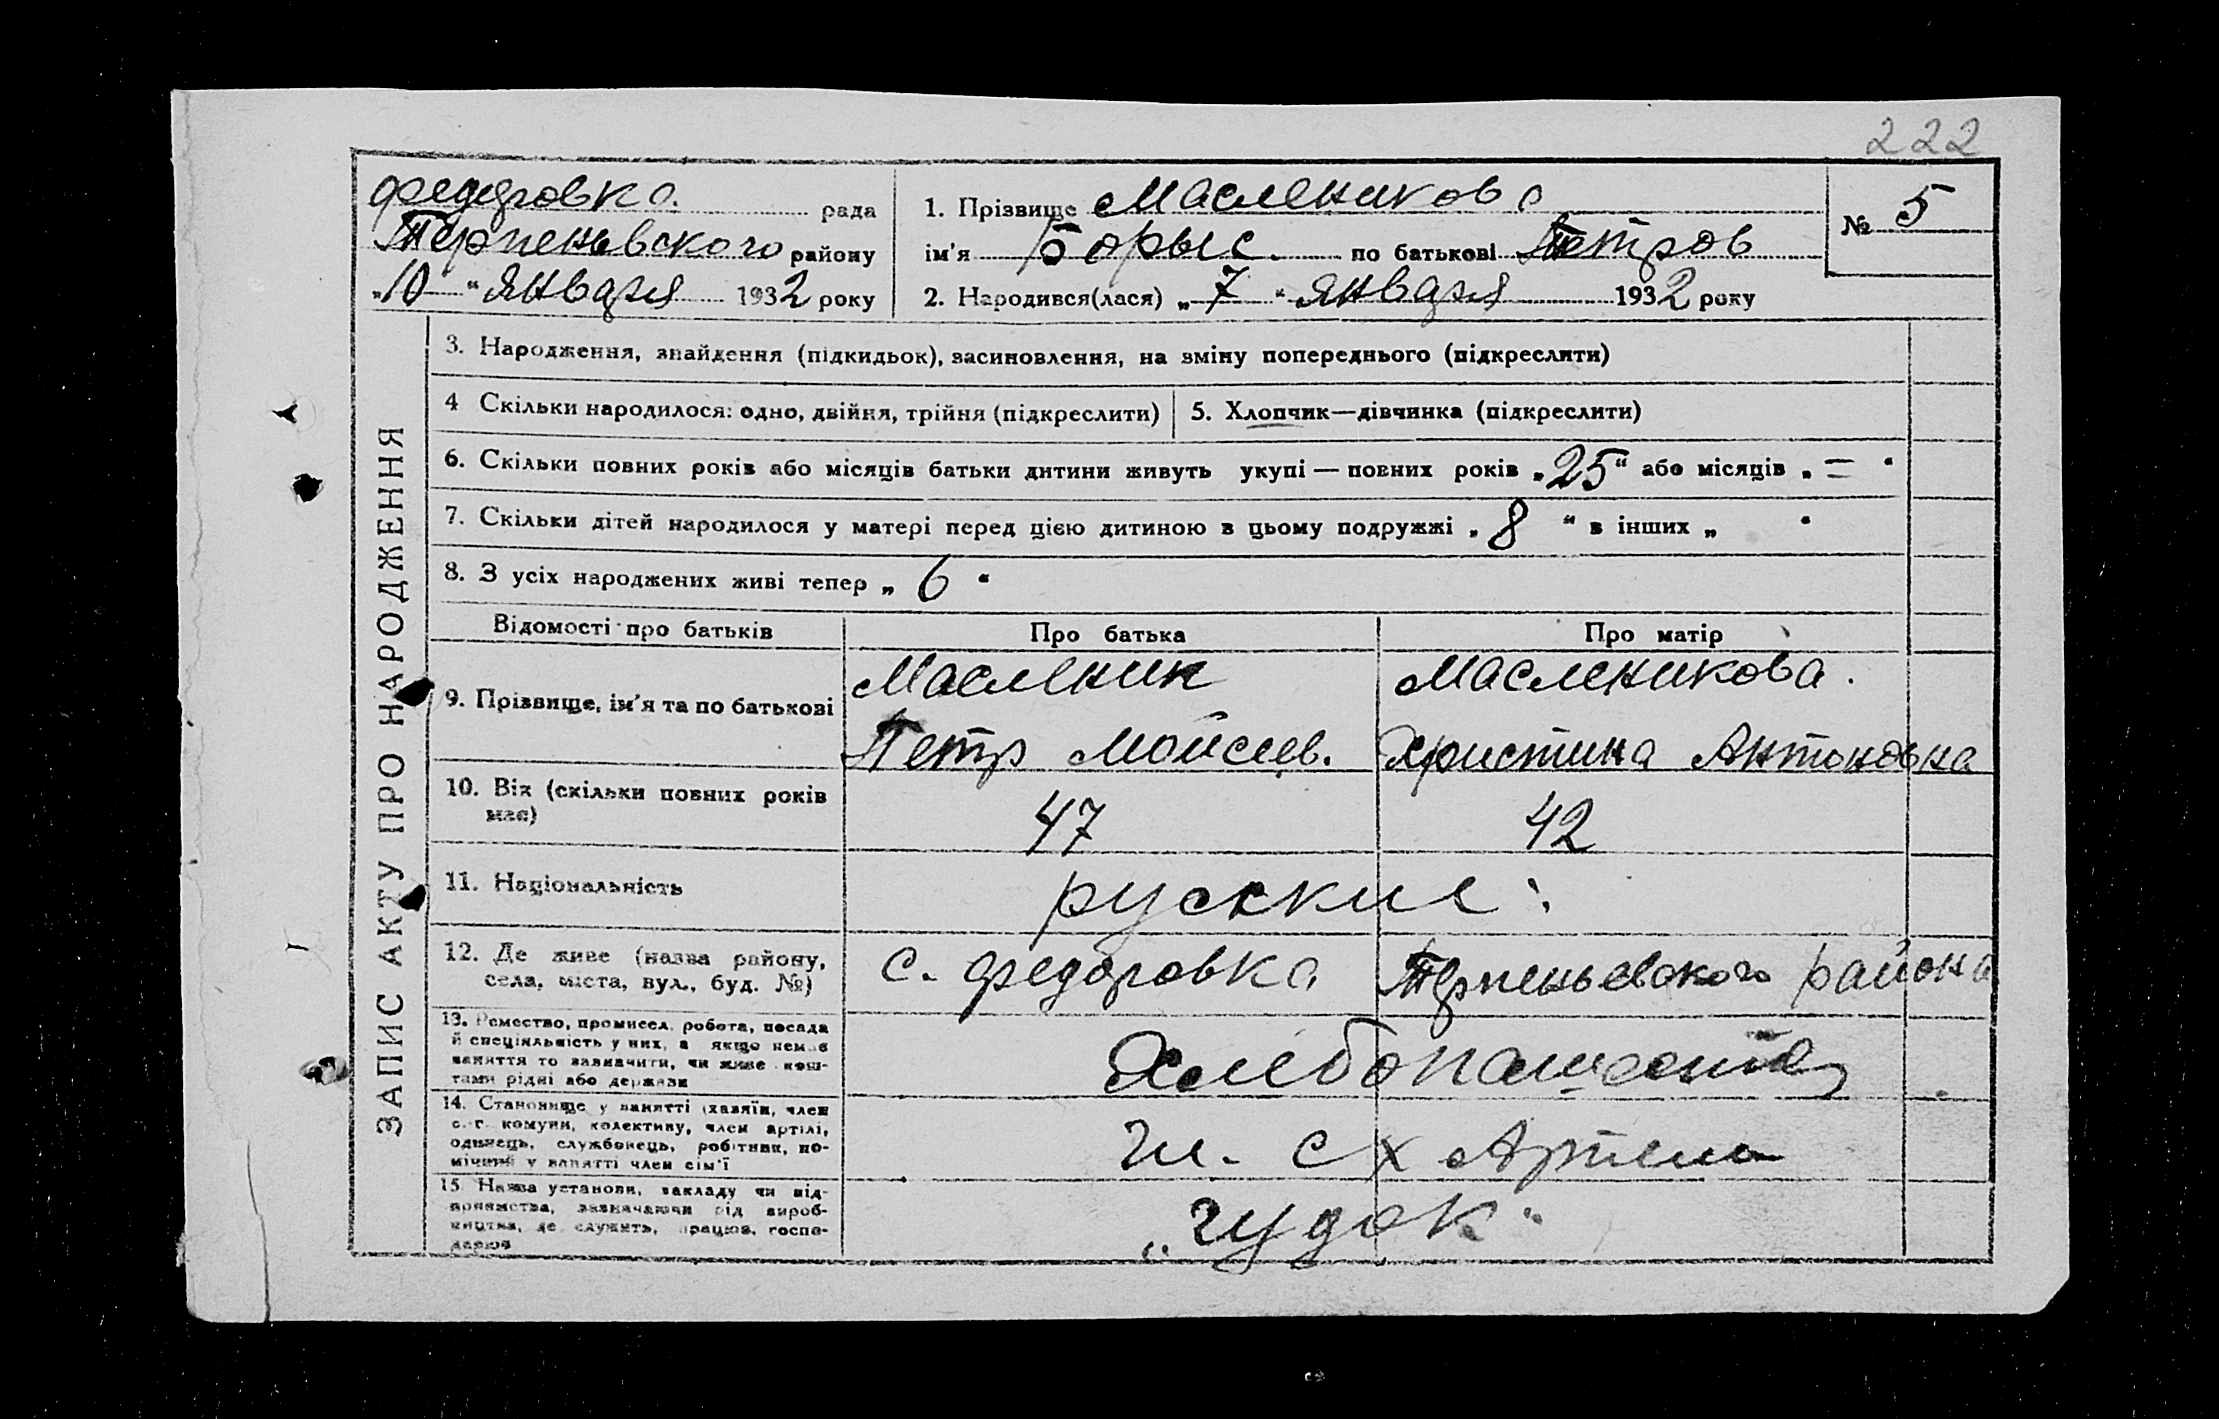 222
Федоровка. рада
Терпеньевского району
„10“ Января 1932 року
1. Прізвище Маслеников
ім'я Борыс. по батькові Петров
2. Народився(лася) „7“ Января 1932 року
№ 5
ЗАПИС АКТУ ПРО НАРОДЖЕННЯ
3. Народження, знайдення (підкидьок), засиновлення, на зміну попереднього (підкреслити)
4 Скільки народилося: одно, двійня, трійня (підкреслити)
5. Хлопчик—дівчинка (підкреслити)
6. Скільки повних років або місяців батьки дитини живуть укупі — повних років „25“ або місяців „ = “
7. Скільки дітей народилося у матері перед цією дитиною в цьому подружжі „8“ в інших „ “
8. З усіх народжених живі тепер „6“
Відомості про батьків
Про батька
Про матір
9. Прізвище, ім'я та по батькові
Масленик
Петр Мойсеев.
Масленикова.
Христина Антоновна
10. Вік (скільки повних років
має)
47
42
11. Національність
русские
12. Де живе (назва району,
села, міста, вул., буд. №)
с. Федоровка Терпеньевского района
13. Ремество, промисел, робота, посада
й спеціяльність у них, а якщо немає
заняття то зазначити, чи живе кош-
тами рідні або держави
14. Становище у занятті (хазяїн, член
с.-г. комуни, колективу, член артілі,
одинець, службовець, робітник, по-
мічний у занятті член сім'ї
Чл. СХ Артели
15. Назва установи, закладу чи під-
приємства, зазначаючи рід вироб-
ництва, де служить, працює, госпо-
дарює
„Гудок“